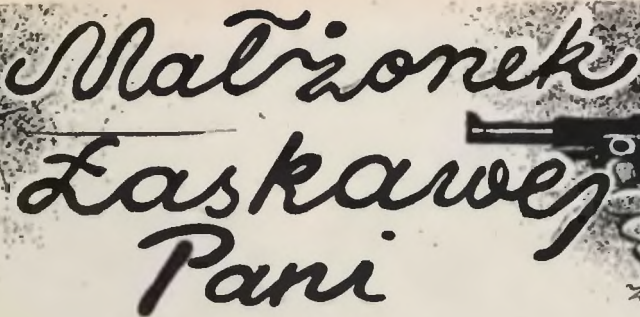 Małżonek
Łaskawej
Pani